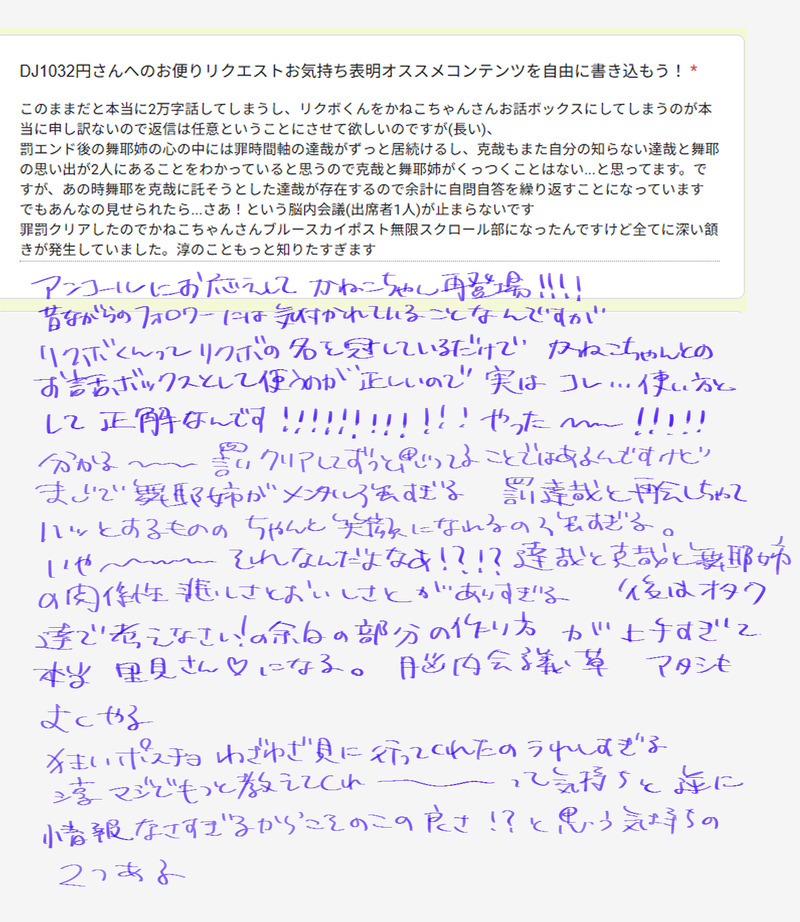 DJ1032円さんへのお便りリクエストお気持ち表明オススメコンテンツを自由に書き込もう！*
このままだと本当に2万字話してしまうし、リクボくんをかねこちゃんさんお話ボックスにしてしまうのが本
当に申し訳ないので返信は任意ということにさせて欲しいのですが(長い)、
罰エンド後の舞耶姉の心の中には罪時間軸の達哉がずっと居続けるし、克哉もまた自分の知らない達哉と舞耶
の思い出が2人にあることをわかっていると思うので克哉と舞耶姉がくっつくことはない...と思ってます。で
すが、あの時舞耶を克哉に託そうとした達哉が存在するので余計に自問自答を繰り返すことになっています
でもあんなの見せられたら...さあ！という脳内会議(出席者1人)が止まらないです
罪罰クリアしたのでかねこちゃんさんブルースカイポスト無限スクロール部になったんですけど全てに深い頷
きが発生していました。淳のこともっと知りたすぎます
アンコールにお応えして かねこちゃん再登場!!!!
昔ながらのフォロワーには気付かれていることなんですが
リクボくんってリクボの名を冠しているだけで かねこちゃんとの
お話ボックスとして使うのが正しいので 実は コレ…使い方と
して 正解なんです!!!!!!!!!!! やった〜〜!!!!!
分かる〜〜 罰クリアしてずっと思ってることではあるんですけど
まじで舞耶姉がメンタル強すぎる 罰達哉と再会しちゃって
ハッとするものの ちゃんと笑顔になれるの強すぎる。
いや〜〜〜 それなんだよなあ!?!? 達哉と克哉と舞耶姉
の関係性 悲しさとおいしさと がありすぎる 後はオタク
達で考えなさい!の余白の部分の作り方 が上手すぎて
本当 里見さん♡になる。 脳内会議草 アタシも
よくやる
狂いポスチョ わざわざ見に行ってくれたのうれしすぎる
淳マジでもっと教えてくれ〜〜〜って気持ちと 逆に
情報なさすぎるからこそのこの良さ!?と思う気持ちの
2つある